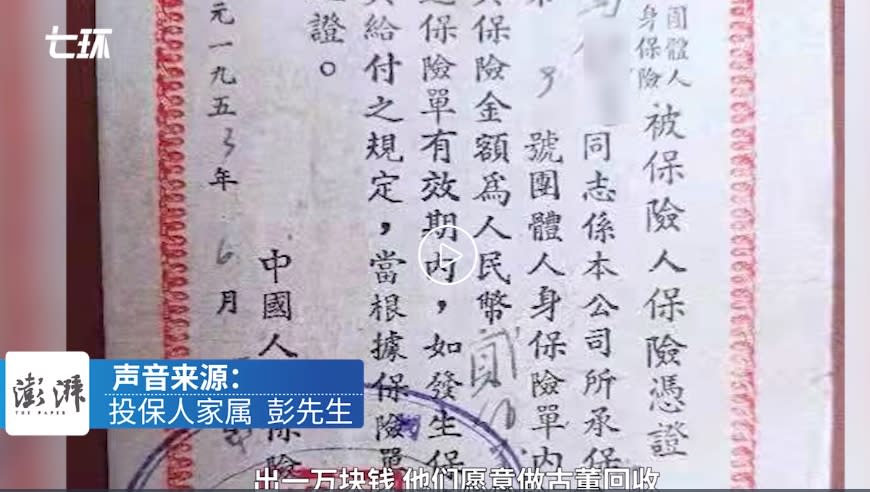 七环
團體人
身保險
被保險人保險憑證
同志係本公司所承保
號團體人身保險單內
保險金額爲人民幣貳
保險單有效期內，如發生保
給付之規定，當根據保險單
證。
中國人
保險
元一九五3年6月
澎湃
THE PAPER
声音来源：
投保人家属 彭先生
出一万块钱 他们愿意做古董回收